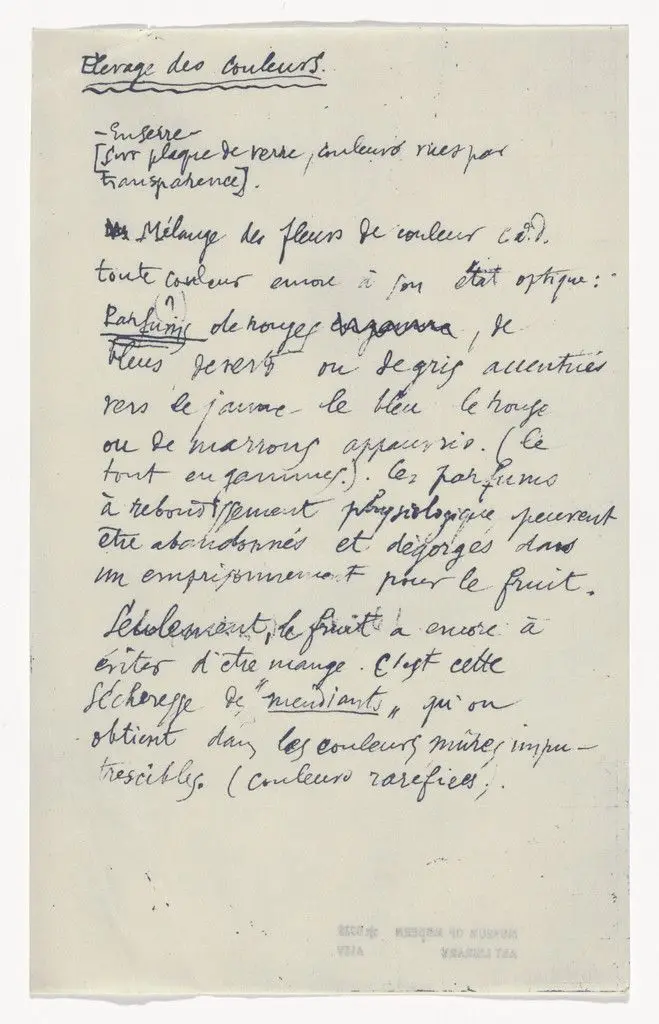 Elevage des couleurs.
- En serre -
[Sur plaque de verre, couleurs vues par
transparence].
Mélange des fleurs de couleur c à d.
toute couleur encore à son état optique :
(?)
Parfums de rouges , de
bleus de verts ou de gris accentués
vers le jaune - le bleu le rouge
ou de marrons appauvris. (le
tout en gammes.). Ces parfums
à rebondissement physiologique peuvent
être abandonnés et dégorgés dans
un emprisonnement pour le fruit.
Seulement, le fruit a encore à
éviter d'être mangé. C'est cette
sécheresse de "mendiants" qu'on
obtient dans les couleurs mûres impu-
trescibles. (couleurs raréfiées).
MUSEUM OF MODERN
ART LIBRARY